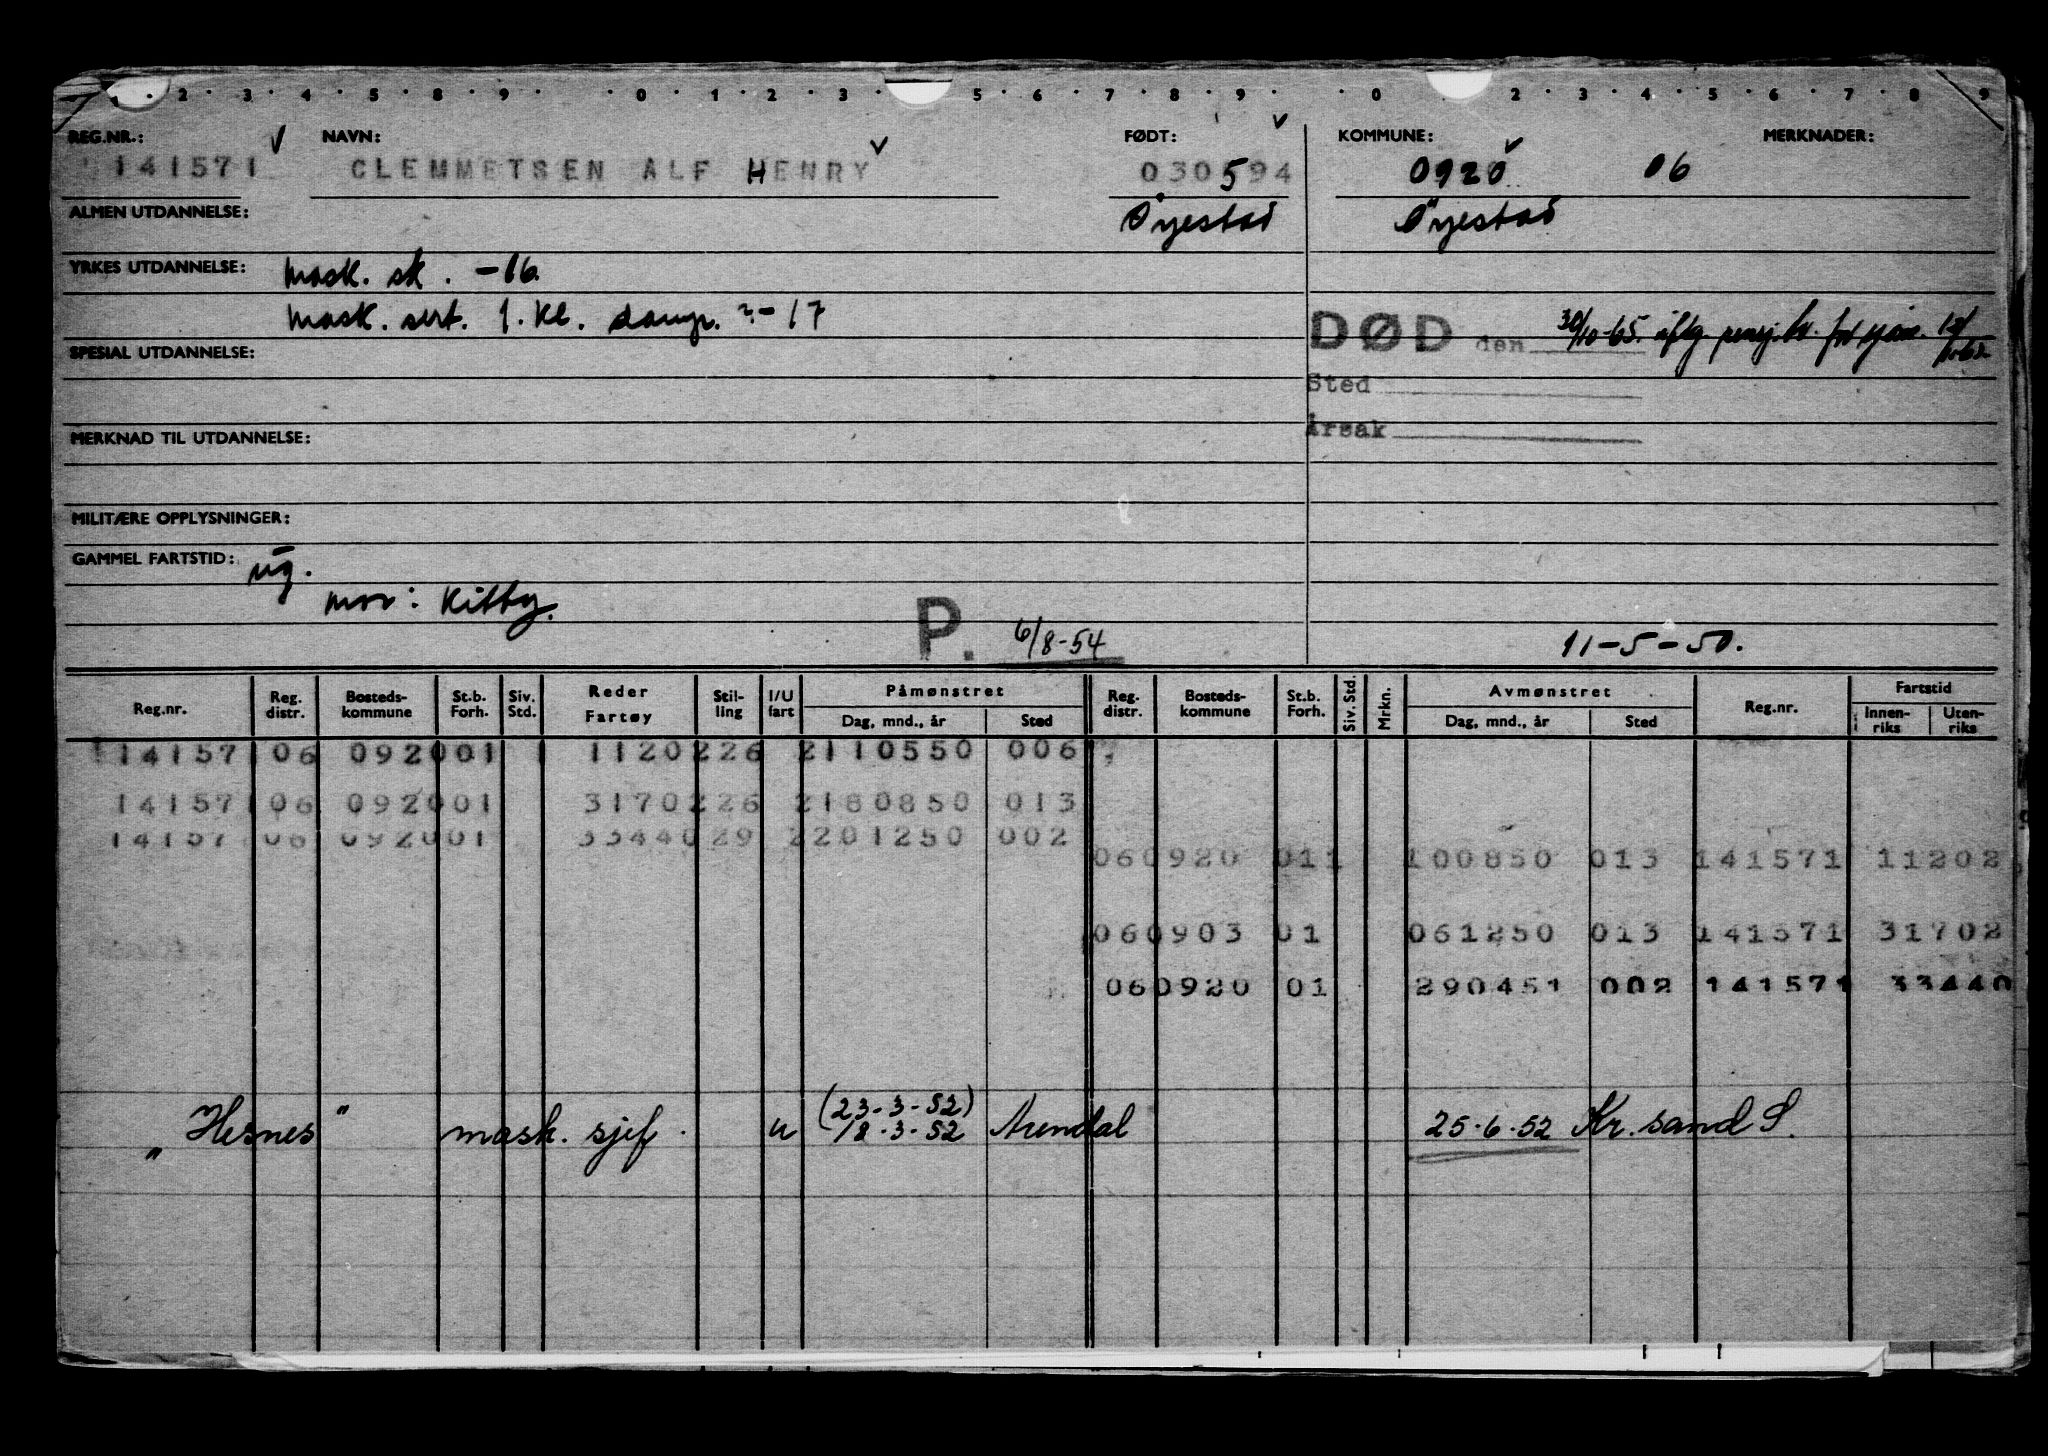 2 3 4 5 8 9 0 1 2 3 5 6 7 8 9 0 2 3 4 5 6 7 8 9
REG.NR.: NAVN: FØDT: KOMMUNE: MERKNADER:
141571 CLEMMETSEN ALF HENRY 030594 0920 06
ALMEN UTDANNELSE: Øyestad Øyestad
YRKES UTDANNELSE: mask. sk. -16.
mask. sert. 1. kl. damp. ?-17
DØD den 30/10-65. iflg. pensj. for sjøm.
SPESIAL UTDANNELSE:
Sted
Årsak
MERKNAD TIL UTDANNELSE:
MILITÆRE OPPLYSNINGER:
GAMMEL FARTSTID: ug.
mor: Kitty.
P. 6/8-54 11-5-50.
Reg.nr. Reg. distr. Bosteds-kommune St.b. Forh. Siv. Std. Reder Fartøy Stil-ling I/U fart Påmønstret Dag, mnd., år Sted Reg. distr. Bosteds-kommune St.b. Forh. Siv. Std. Mrkn. Avmønstret Dag, mnd., år Sted Reg.nr. Fartstid Innen-riks Uten-riks
14157 06 092001 1 1120226 2110550 006
14157 06 092001 3170226 2180850 013
14157 06 092001 3344029 2201250 002
060920 011 100850 013 141571 11202
060903 01 061250 013 141571 31702
060920 01 290451 002 141571 33440
(23-3-52)
"Hesnes" mask. sjef. u 18-3-52 Arendal 25-6-52 Kr.sand S.